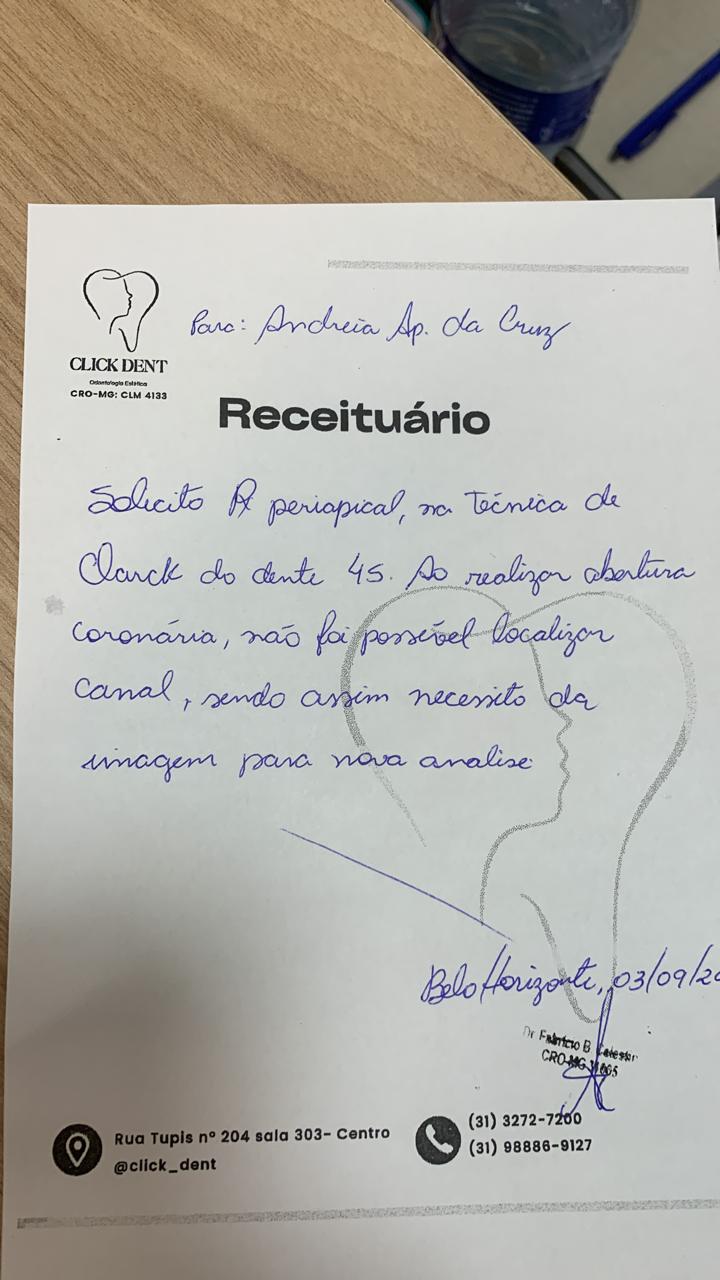 Para: Andreia Ap. da Cruz
CLICK DENT
Odontologia Estética
CRO-MG: CLM 4133
Receituário
Solicito RX periapical, na técnica de
Clarck do dente 45. Ao realizar abertura
coronária, não foi possível localizar
canal, sendo assim necessito da
imagem para nova analise
Belo Horizonte, 03/09/20
Dr Fabrício B
CRO-MG
Rua Tupis nº 204 sala 303- Centro
@click_dent
(31) 3272-7200
(31) 98886-9127